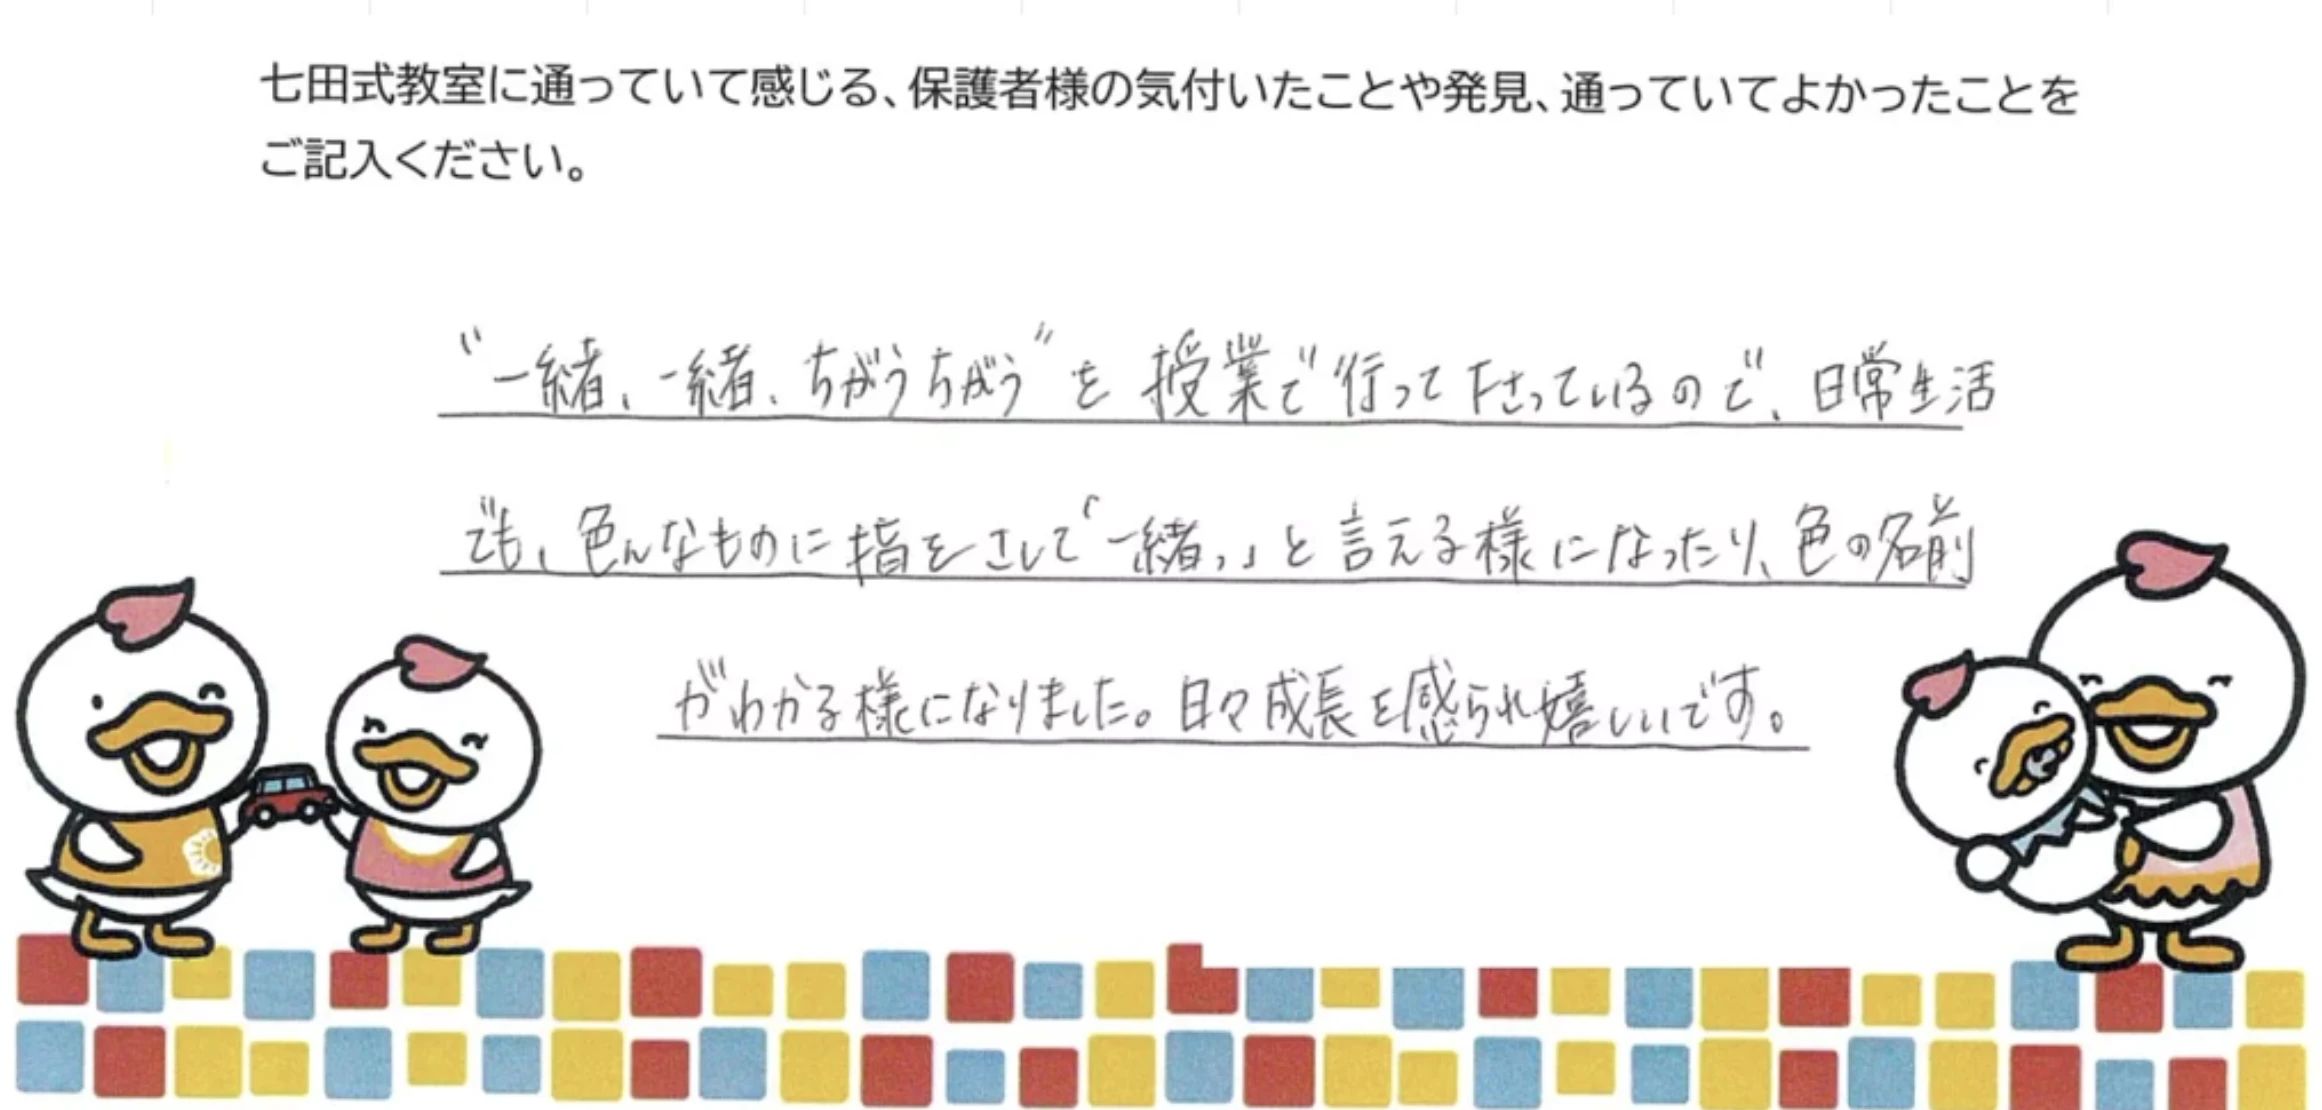 七田式教室に通っていて感じる、保護者様の気付いたことや発見、通っていてよかったことを
ご記入ください。
“一緒、一緒、ちがうちがう”を授業で行って下さっているので、日常生活
でも、色んなものに指をさして「一緒っ」と言える様になったり、色の名前
がわかる様になりました。日々成長を感られ嬉しいです。